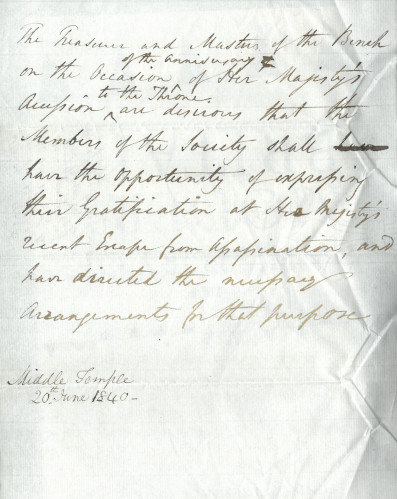 The Treasurer and Masters of the Bench
of the anniversary
on the Occasion of Her Majesty's
to the Throne
Accession are desirous that the
Members of the Society shall
have the opportunity of expressing
their Gratification at Her Majesty's
recent Escape from Assassination, and
have directed the necessary
Arrangements for that purpose
Middle Temple
20th June 1840